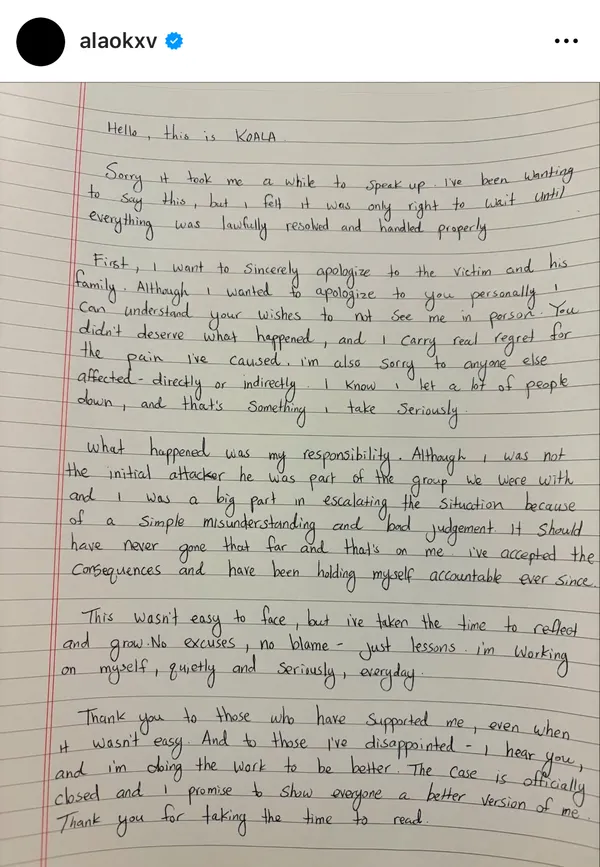 alaokxv
Hello, this is KOALA
Sorry it took me a while to speak up. I've been wanting
to say this, but i felt it was only right to wait until
everything was lawfully resolved and handled properly
First, I want to sincerely apologize to the victim and his
family. Although i wanted to apologize to you personally i
can understand your wishes to not see me in person. You
didn't deserve what happened, and I carry real regret for
the pain I've caused. i'm also sorry to anyone else
affected - directly or indirectly. I know i let a lot of people
down, and that's something i take seriously.
What happened was my responsibility. Although i was not
the initial attacker he was part of the group we were with
and I was a big part in escalating the situation because
of a simple misunderstanding and bad judgement. It should
have never gone that far and that's on me. i've accepted the
consequences and have been holding myself accountable ever since.
This wasn't easy to face, but i've taken the time to reflect
and grow. No excuses, no blame - just lessons. i'm working
on myself, quietly and seriously, everyday.
Thank you to those who have supported me, even when
it wasn't easy. And to those I've disappointed - I hear you,
and i'm doing the work to be better. The case is officially
closed and I promise to show everyone a better version of me.
Thank you for taking the time to read.